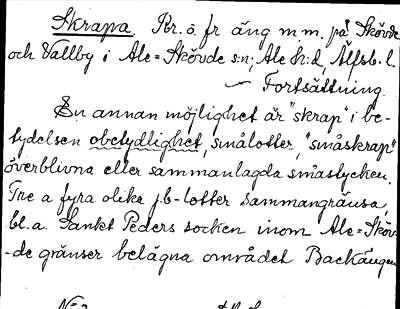 Skrapa. Kr. ö. fr äng m.m. på Skövde
och Vallby i Ale=Skövde s:n; Ale h:d, Älfsb. l.
— Fortsättning.
En annan möjlighet är "skrap" i be-
tydelsen obetydlighet, smålotter, "småskrap"
överblivna eller sammanlagda småstycken.
Tre a fyra olika j.b-lotter sammangränsa,
bl.a. Sankt Peders socken inom Ale=Sköv-
-de gränser belägna området Backängen